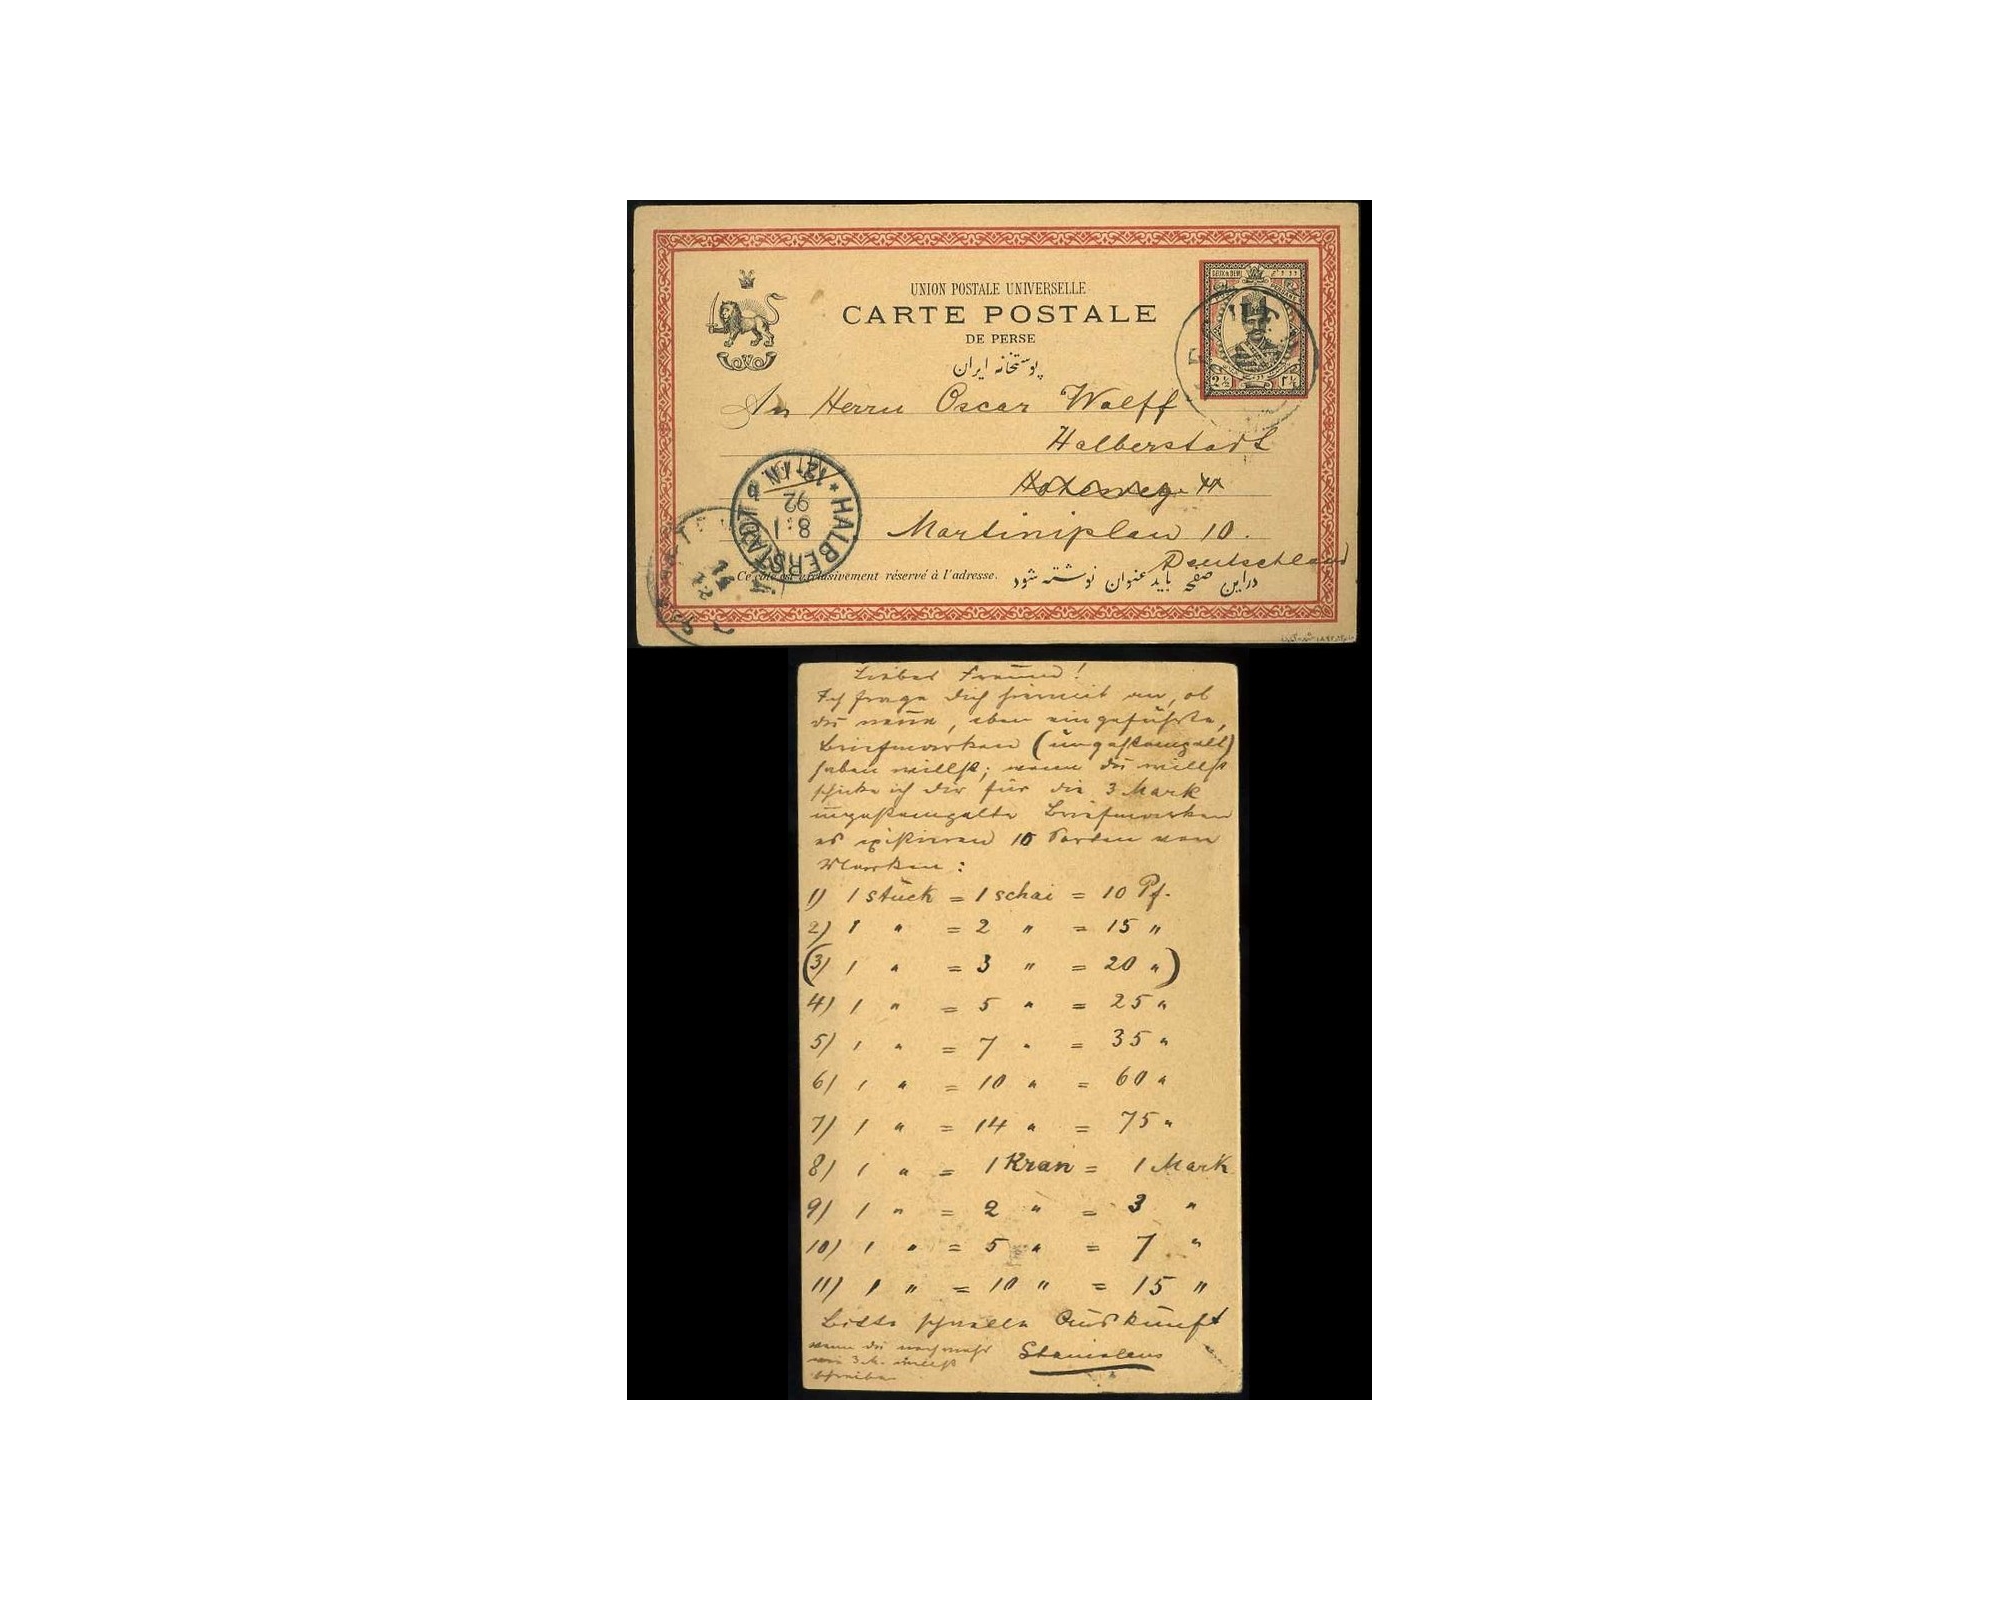 UNION POSTALE UNIVERSELLE
CARTE POSTALE
DE PERSE
پوستخانه ایران
2½ ۲½
An Herrn Oscar Wolff
Halberstadt
Hoheweg 44
Martiniplan 10.
Deutschland
HALBERSTADT
92
8-
Ce côté est exclusivement réservé à l'adresse.
در این صفحه باید عنوان نوشته شود
Lieber Freund!
Ich frage dich hiermit an, ob
du neue, eben eingeführte,
Briefmarken (ungestempelt)
haben willst; wenn du willst
schicke ich dir für die 3 Mark
ungestempelte Briefmarken
es existieren 10 Sorten von
Marken:
1) 1 stück = 1 schai = 10 Pf.
2) 1 " = 2 " = 15 "
(3) 1 " = 3 " = 20 ")
4) 1 " = 5 " = 25 "
5) 1 " = 7 " = 35 "
6) 1 " = 10 " = 60 "
7) 1 " = 14 " = 75 "
8) 1 " = 1 Kran = 1 Mark
9) 1 " = 2 " = 3 "
10) 1 " = 5 " = 7 "
11) 1 " = 10 " = 15 "
Bitte schnelle Auskunft
wenn du noch mehr
wie 3 M. willst
schreibe
Stanislaus